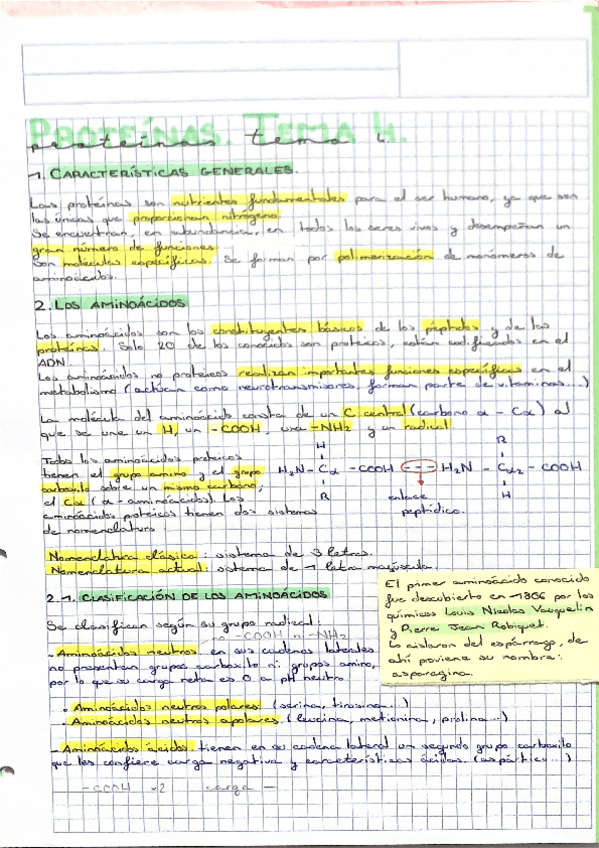 PROTEÍNAS. TEMA 4.
proteínas tema 4.
1. CARACTERÍSTICAS GENERALES.
Las proteínas son nutrientes fundamentales para el ser humano, ya que son
las únicas que proporcionan nitrógeno.
Se encuentran, en abundancia, en todos los seres vivos y desempeñan un
gran número de funciones.
Son moléculas específicas. Se forman por polimerización de monómeros de
aminoácidos.
2. LOS AMINOÁCIDOS
Los aminoácidos son los constituyentes básicos de los péptidos y de las
proteínas. Solo 20 de los conocidos son proteicos, están codificados en el
ADN
Los aminoácidos no proteicos realizan importantes funciones específicas en el
metabolismo (actúan como neurotransmisores, forman parte de vitaminas...)
La molécula del aminoácido consta de un C central (carbono α - Cα) al
que se une un H, un -COOH, una -NH2 y un radical.
Todos los aminoácidos proteicos
tienen el grupo amino y el grupo
carboxilo sobre un mismo carbono,
el Cα (α-aminoácidos). Los
aminoácidos proteicos tienen dos sistemas
de nomenclatura:
H R
H2N - Cα - COOH --- H2N - Cα2 - COOH
R H
enlace
peptídico.
Nomenclatura clásica: sistema de 3 letras.
Nomenclatura actual: sistema de 1 letra mayúscula.
2.1. CLASIFICACIÓN DE LOS AMINOÁCIDOS
Se clasifican según su grupo radical:
no -COOH ni -NH2
- Aminoácidos neutros: en sus cadenas laterales
no presentan grupos carboxilo ni grupos amino,
por lo que su carga neta es 0 a pH neutro.
• Aminoácidos neutros polares: (serina, tirosina...)
- Aminoácidos neutros apolares: (leucina, metionina, prolina...)
- Aminoácidos ácidos: tienen en su cadena lateral un segundo grupo carboxilo
que les confiere carga negativa y características ácidas. (aspártico...)
-COOH x2 carga -
El primer aminoácido conocido
fue descubierto en 1806 por los
químicos Louis Nicolas Vauquelin
y Pierre Jean Robiquet.
Lo aislaron del espárrago, de
ahí poviene su nombre:
asparagina.